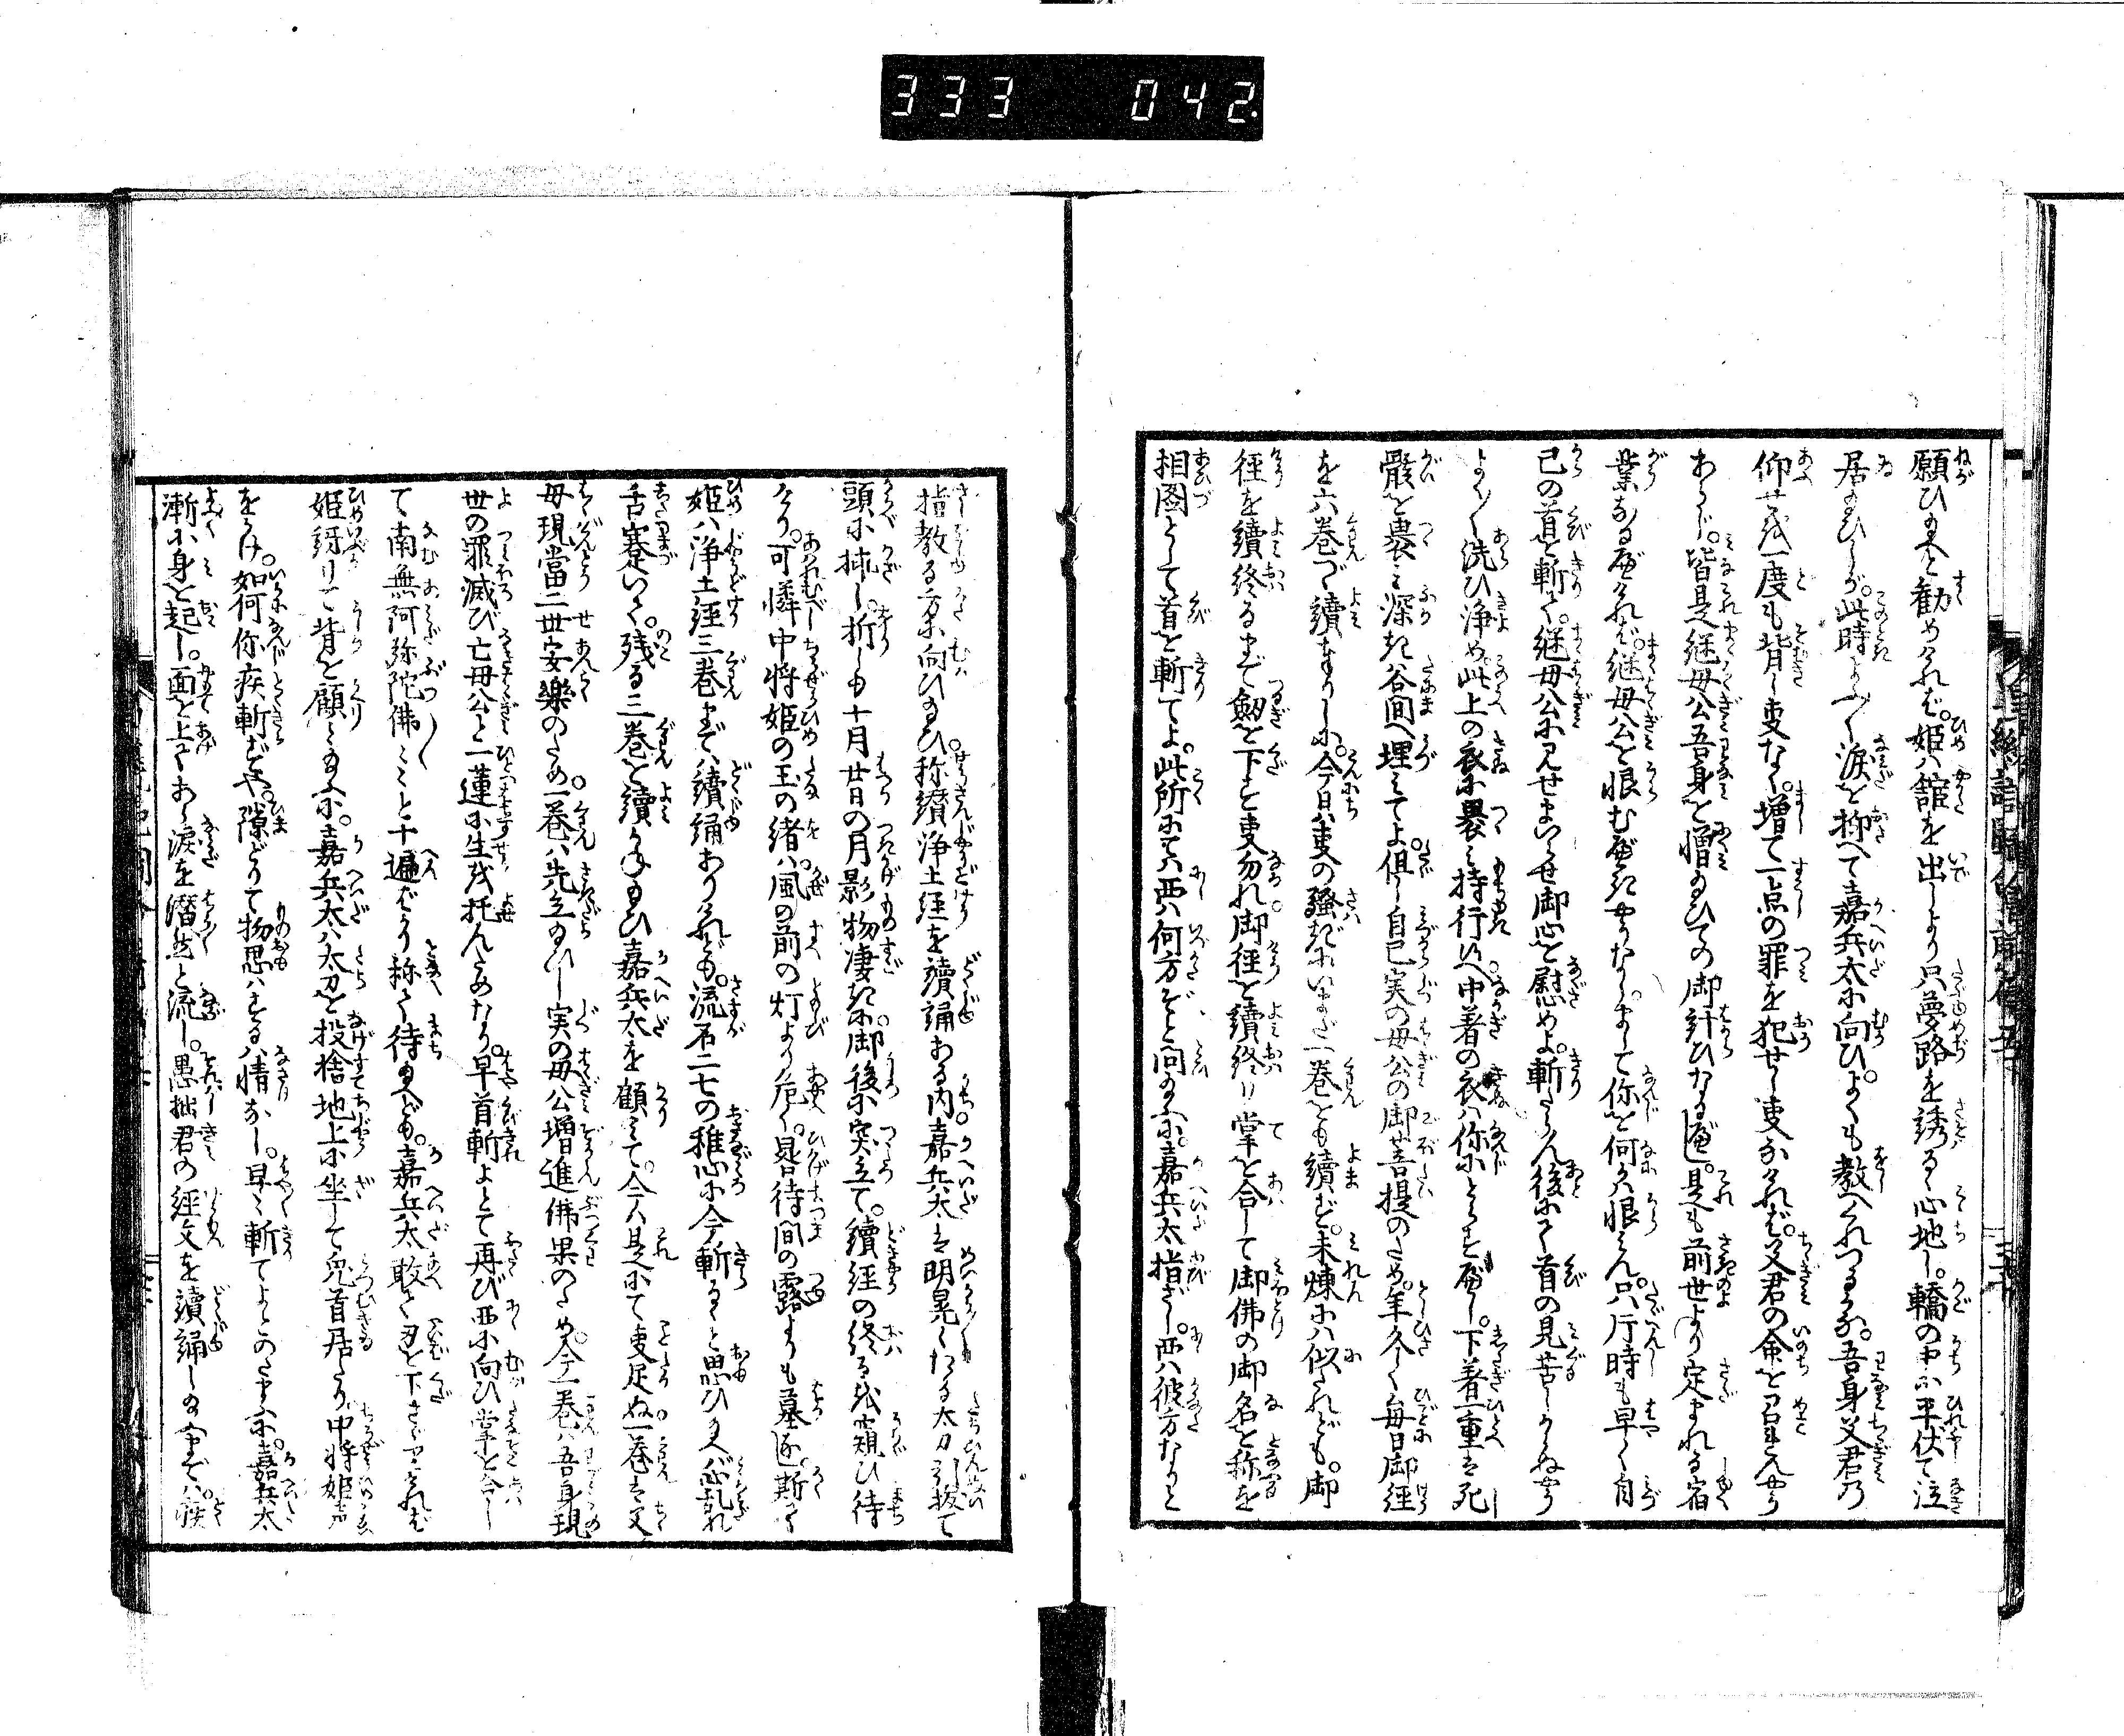 333 042.
願ひ給へと勧めければ。姫ハ館を出しより只夢路を誘るゝ心地し。轎の中に平伏て泣
居給ひしが。此時やう〳〵涙を抑へて嘉兵太に向ひ。よくも教へくれつるかな。吾身父君の
仰せを一度も背し事なく。増て一点の罪を犯せし事なければ。父君の命を召玉ふやう
あらじ。皆是継母公吾身を憎給ひての御計ひなる可し。是も前世より定まれる宿
業なる可ければ。継母公を恨む可きやうなし。まして你を何か恨ミん。只片時も早く自
己の首を斬て。継母公に見せまいらせ御心を慰めよ。斬らん後にて首の見苦しからぬやう
よく〳〵洗ひ浄め。此上の衣に裹ミ持行バ。中着の衣ハ你にとらす可し。下着一重は死
骸を裹ミ深き谷間へ埋ミてよ。但し自己実の母公の御菩提のため。年久しく毎日御経
を六巻づゝ読まゐりしに。今日ハ事の騒ぎにいまだ一巻をも読ず。未煉にハ似たれども。御
経を續終るまで劔を下す事勿れ御経を續終り掌を合して御佛の御名を称を
相図として首を斬てよ。此所にてハ西ハ何方ぞと問給ふに。嘉兵太指ざし。西ハ彼方なりと
指教る方に向ひ給ひ。称讃浄土経を讀誦ある内。嘉兵太は明晃々たる太刀引抜て
頭に挿し。折しも十月廿日の月影物凄きに。御後に突立て。續経の終るを窺ひ待
けり。可憐中将姫の玉の緒ハ風の前の灯より危く。晷待間の露よりも墓逐。斯て
姫ハ浄土経三巻までハ讀誦ありけれども。流石二七の稚心に今斬るゝと思ひ給へバ心乱れ
舌蹇いて。残る三巻を續かね給ひ嘉兵太を顧ミて。今ハ是にて事足ぬ一巻は父
母現當二世安樂のため。一巻ハ先立給ひし実の母公増進佛果のため。今一巻ハ吾身現
世の罪滅び亡母公と一蓮に生を托んためなり。早首斬よとて再び西に向ひ掌を合し
て南無阿弥陀佛〳〵と十遍ばかり称て待給へども。嘉兵太敢て刃を下さゞりければ
姫訝りて背を顧ミ給ふに。嘉兵太ハ太刀を投捨地上に坐して俛首居たり。中将姫声
をかけ。如何你疾斬ざや。隙どりて物思ハする情なし。早く斬てよとのたまふに。嘉兵太
漸に身を起し。面を上てあら涙を潜然と流し。愚拙君の経文を讀誦し給ふまでハ。疾